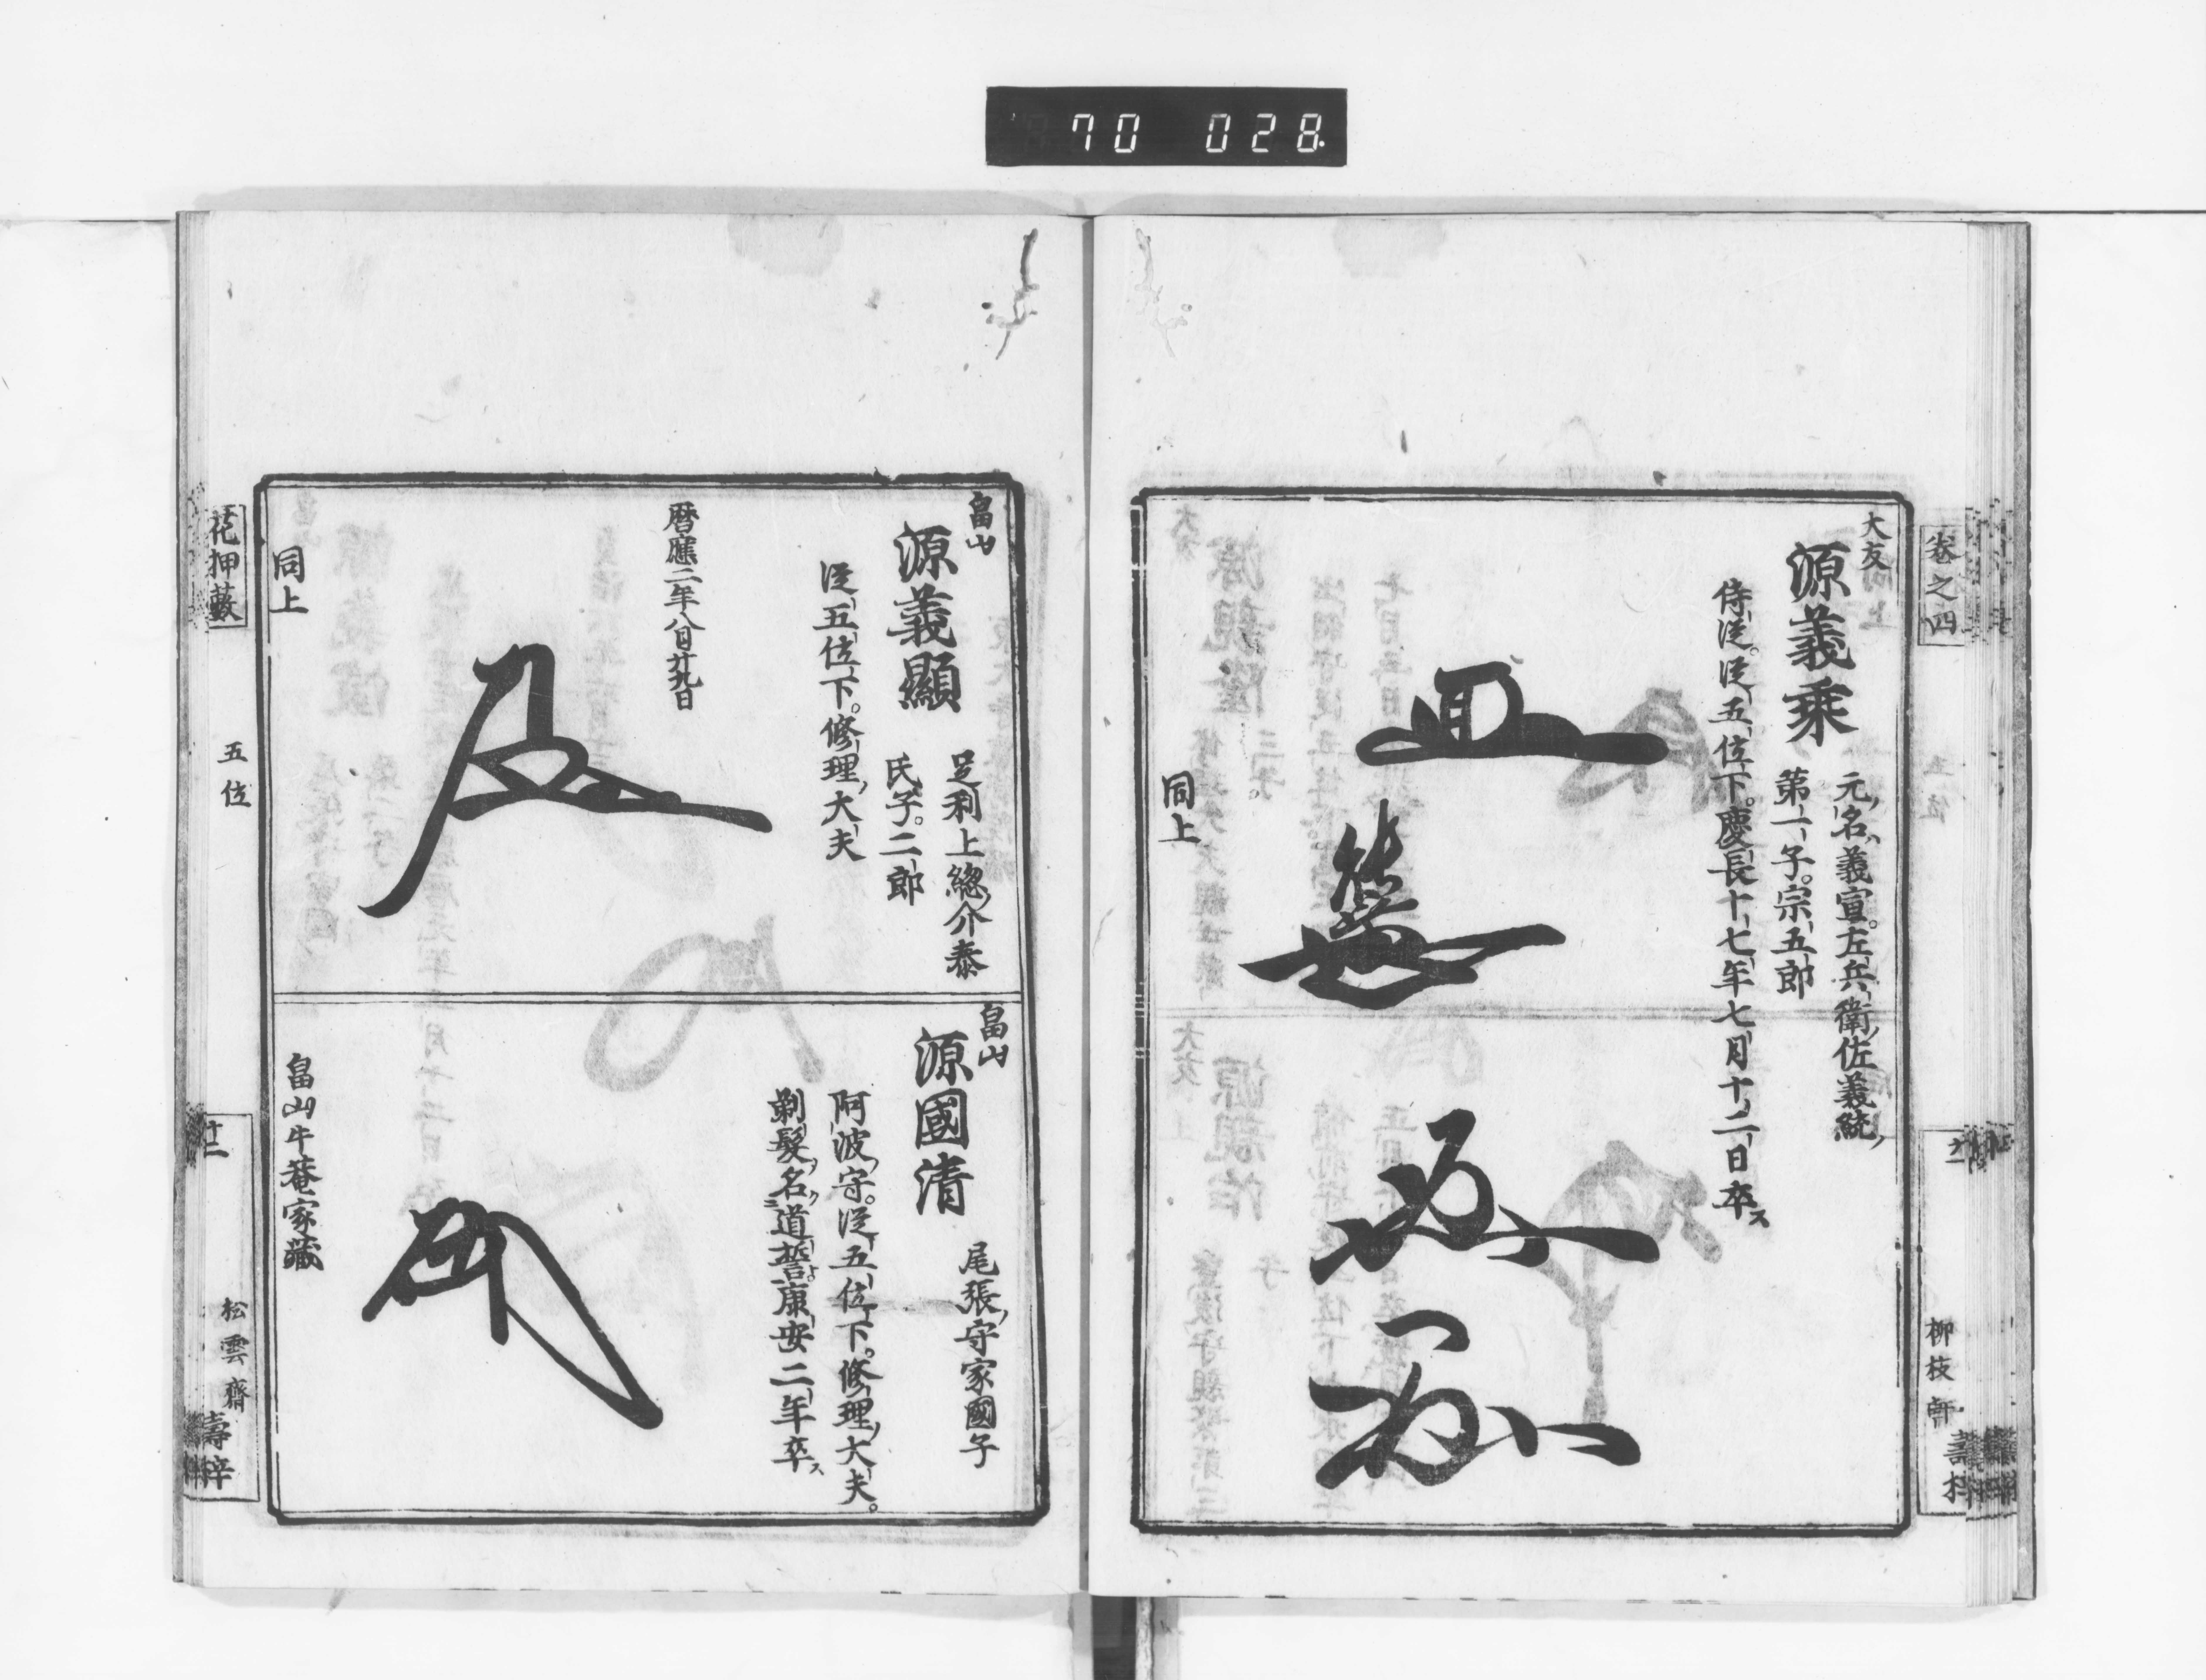 70 028
卷之四
柳枝軒
大友
源義乗
元名義宣。左兵衛佐義統
第一子。宗五郎
侍従。従五位下。慶長十七年七月十二日卒ス
同上
畠山
源義顯
足利上總介泰
氏子。二郎
従五位下。修理大夫
暦應二年八月廿九日
同上
畠山
源國清
尾張守家國子
阿波守。従五位下。修理大夫。
剃髮名道誓康安二年卒ス
畠山牛菴家藏
花押藪
五位
十二
松雲齋
壽梓